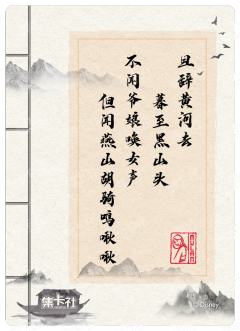 旦辞黄河去
暮至黑山头
不闻爷娘唤女声
但闻燕山胡骑鸣啾啾
集卡社
©Disney